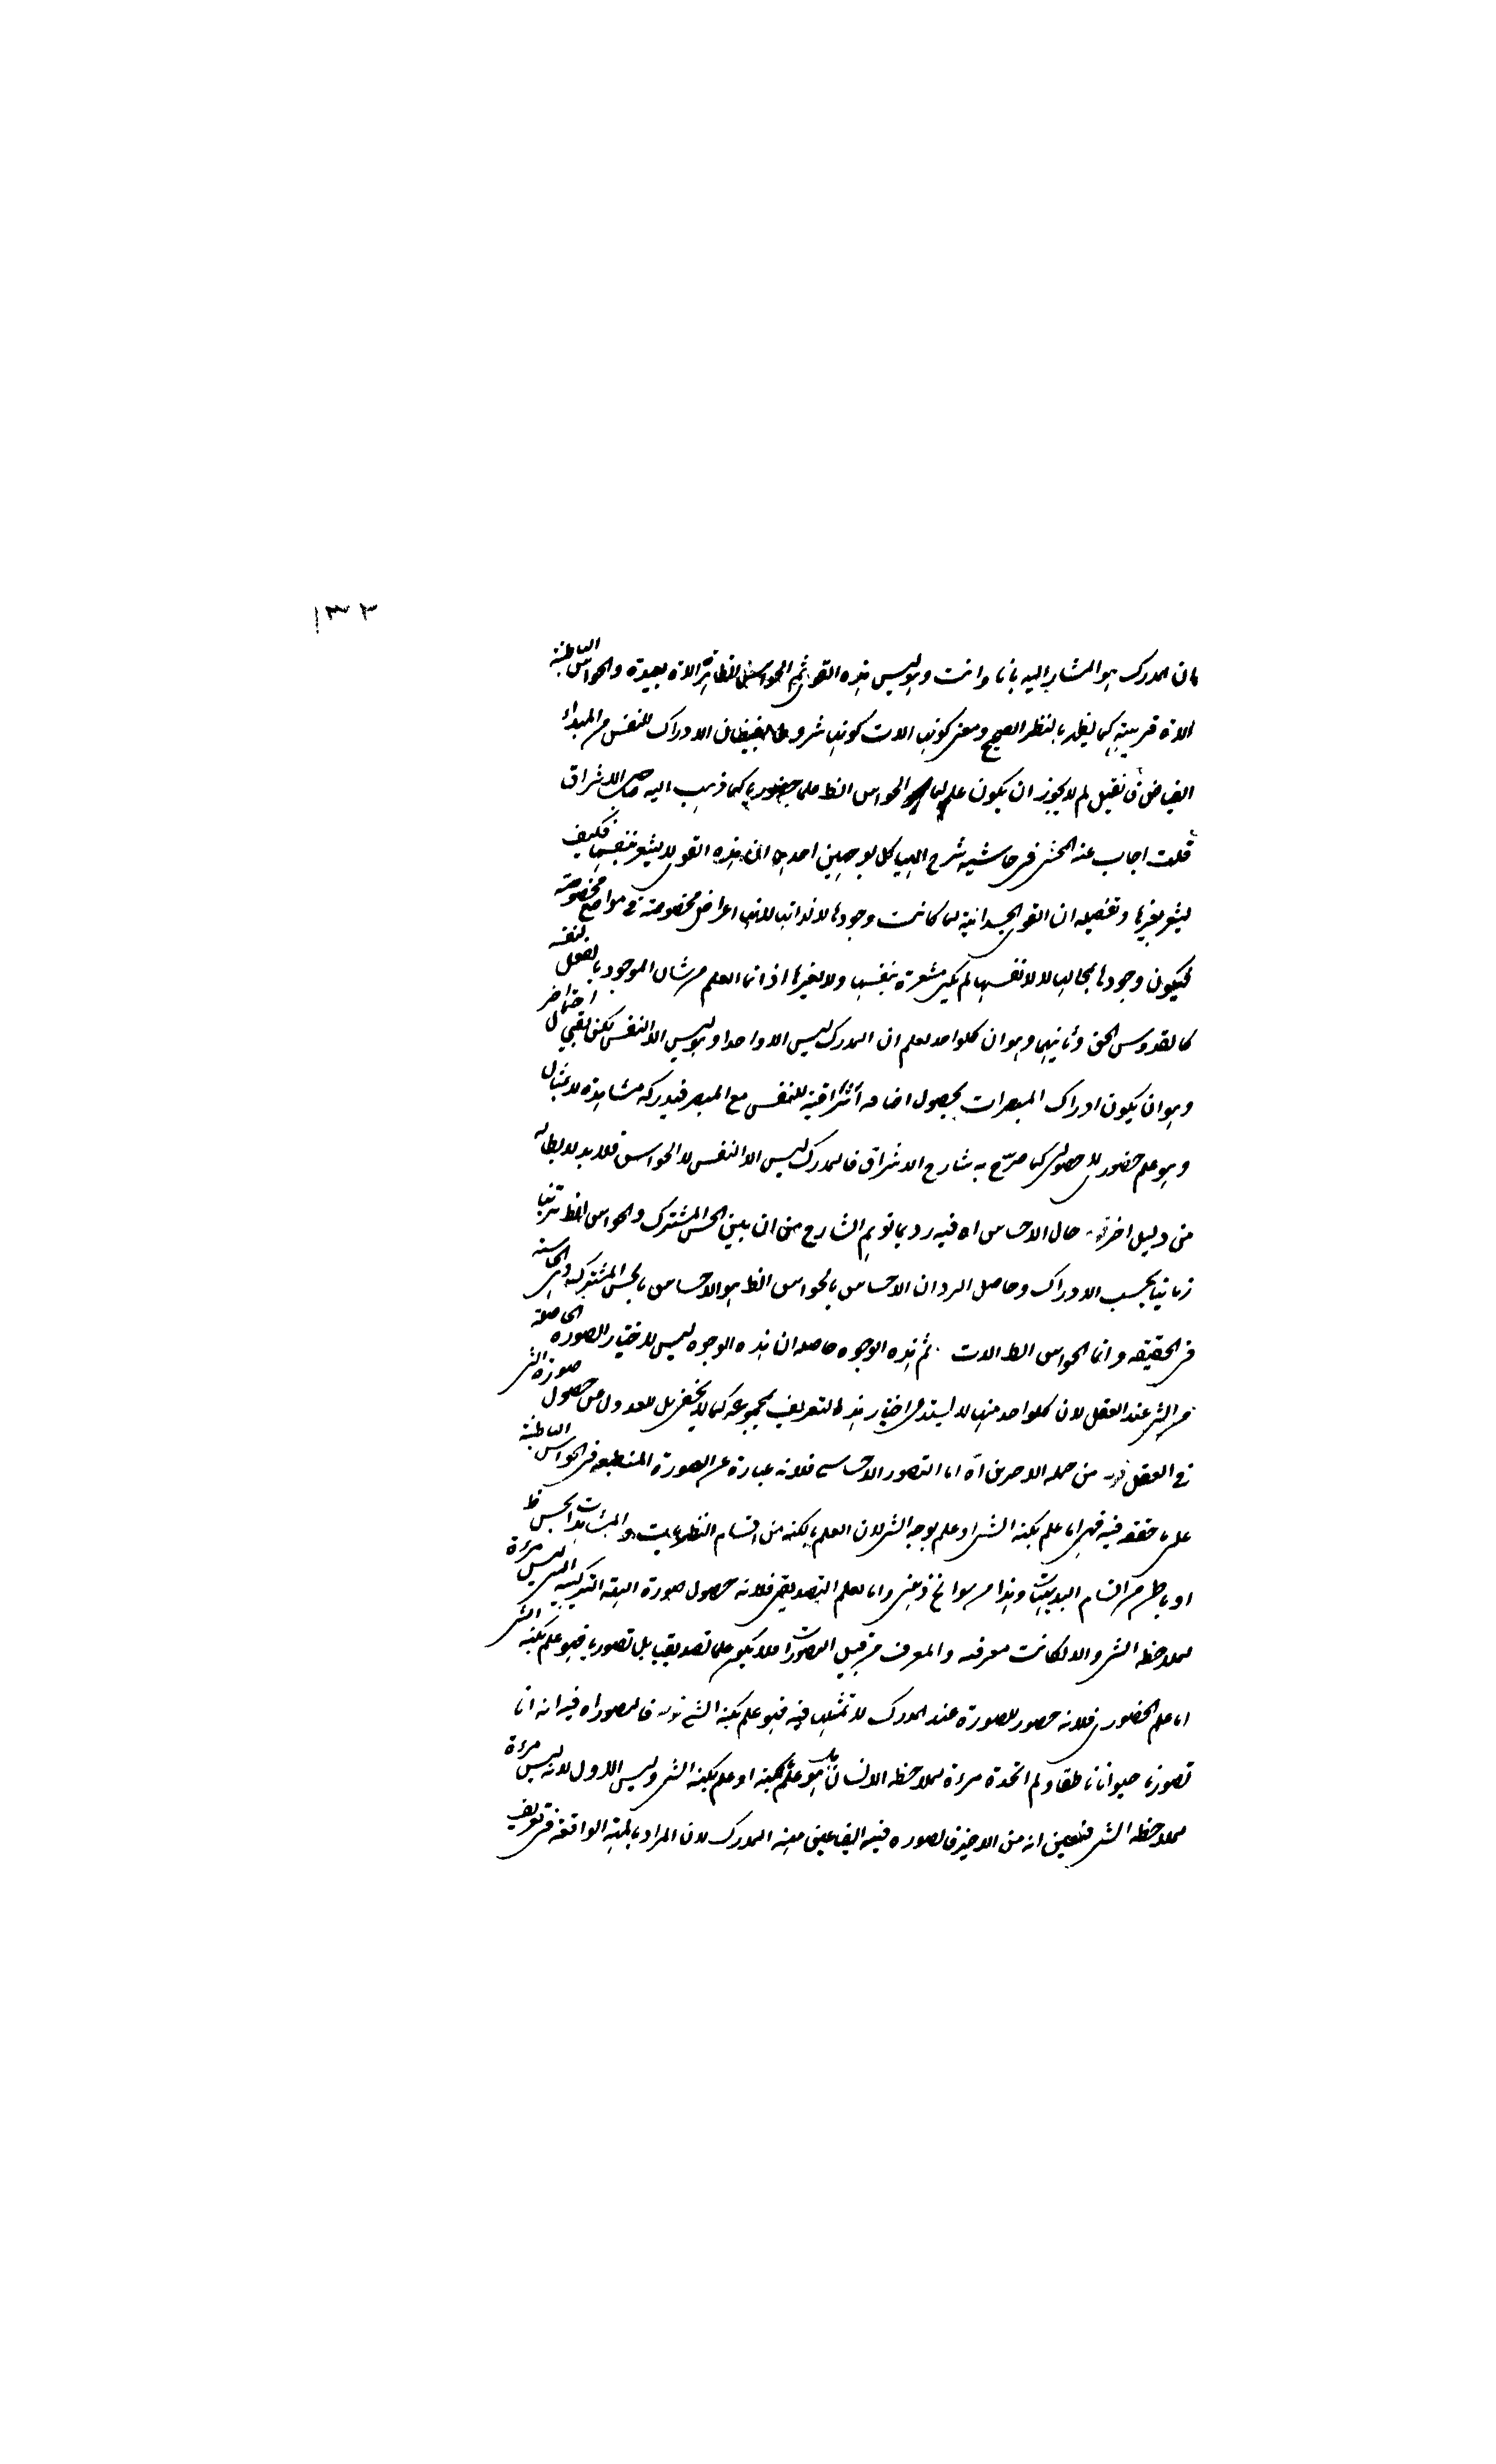 ١٣٣
بان المدرك هو المشار اليه بانا وانت وهو ليس هذه القوى ثم الحواس الظاهرة الاة بعيدة والحواس الباطنة
الاة قريبة كما يظهر بالنظر الصحيح ومعنى كونها الات كونها شروطا لفيضان الادراك للنفس من المبداء
الفياض فان قيل لم لا يجوز ان يكون علم الحواس الظ علما حضوريا كما ذهب اليه صاحب الاشراق
قلت اجاب عنه المحشى فى حاشية شرح الهياكل بوجهين احدها ان هذه القوى لا يشعر بنفسها فكيف
يشعر بغيرها وتفصيله ان القوى الجسدانية لما كانت وجودها لا لذاتها لانها اعراض مخصوصة فى مواضع مخصوصة
فيكون وجودها لمحالها لا لانفسها لم يكن مشعرة بنفسها ولا لغيرها اذ انما العلم من شان الموجود بالفعل لنفسه
كالقدوس الحق وثانيهما وهو ان كل واحد يعلم ان المدرك ليس الا واحدا وهو ليس الا النفس لكن بقى احتمال اخر
وهو ان يكون ادراك المبصرات بحصول اضافة اشراقية للنفس مع المبصر فيدركه مشاهدة لا بمثال
وهو علم حضورى لا حصولى كما صرح به شارح الاشراق فالمدرك ليس الا النفس لا الحواس فلا بد لابطاله
من دليل اخر قوله حال الاحساس اه فيه رد بما توهم الشارح من ان بين الحس المشترك والحواس الظ ترتبا
زمانيا بحسب الادراك وحاصل الرد ان الاحساس بالحواس الظ هو الاحساس بالحس المشترك وهى الحاسة
فى الحقيقة وانما الحواس الظ الات قوله ثم هذه الوجوه حاصله ان هذه الوجوه ليس لاختيار الصورة الحاصلة
من الشى عند العقل لان كل واحد منها لا يستدعى اختيار هذا التعريف بمجموعه كما لا يخفى بل للعدول من حصول صورة الشى
فى العقل قوله من جملة الاخرين اه اما التصور الاحساسى فلانه عبارة عن الصورة المنطبعة فى الحواس الباطنة
على ما حققه فيه فهى اما علم بكنه الشى او علم بوجه الشى لان العلم بالكنه من اقسام النظريات والمشاهدات بالحس ظ
او باطن من اقسام البديهيات وهذا من سوانح ذهنى واما العلم التصديقى فلانه حصول صورة الهيئة التركيبية التى ليس مرءة
لملاحظة الشى والا لكانت معرفة والمعرف من قبيل التصورات فلا يكون علما تصديقيا بل تصوريا فهو علم بكنه الشى
اما علم الحضورى فلانه حضور للصورة عند المدرك لا تمثلها فيه فهو علم بكنه الشى قوله فالتصور اه فيه انه انا
تصورنا حيوانا ناطقا ولم اتخذه مرءة لملاحظة الانسان هل هو علم بكنهه او علم بكنه الشى وليس الاول لانه ليس مرءة
لملاحظة الشى فتعين انه من الاخير فالصورة فيه ايضا عين مهية المدرك لان المراد بالمهية الواقعة فى تعريف